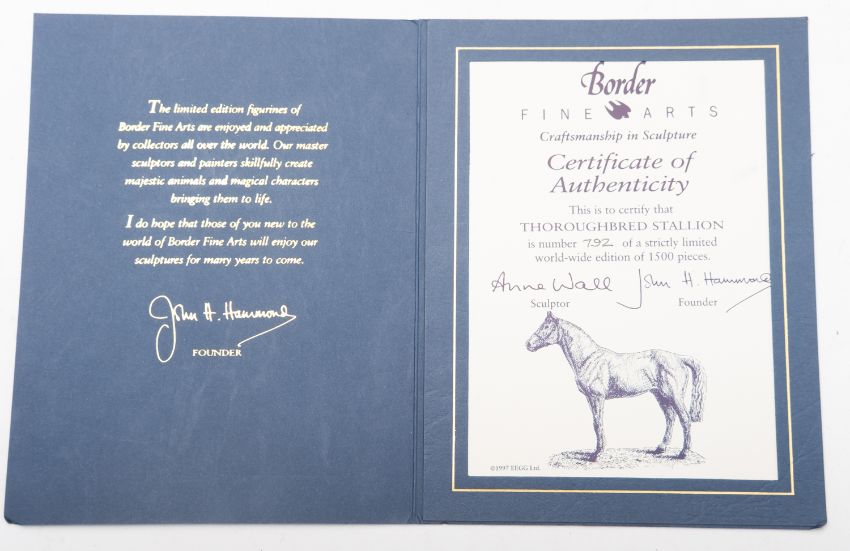 The limited edition figurines of
Border Fine Arts are enjoyed and appreciated
by collectors all over the world. Our master
sculptors and painters skillfully create
majestic animals and magical characters
bringing them to life.
I do hope that those of you new to the
world of Border Fine Arts will enjoy our
sculptures for many years to come.
John H. Hammond
FOUNDER
Border
FINE ARTS
Craftsmanship in Sculpture
Certificate of
Authenticity
This is to certify that
THOROUGHBRED STALLION
is number 792 of a strictly limited
world-wide edition of 1500 pieces.
Anne Wall John H. Hammond
Sculptor Founder
©1997 EEGG Ltd.